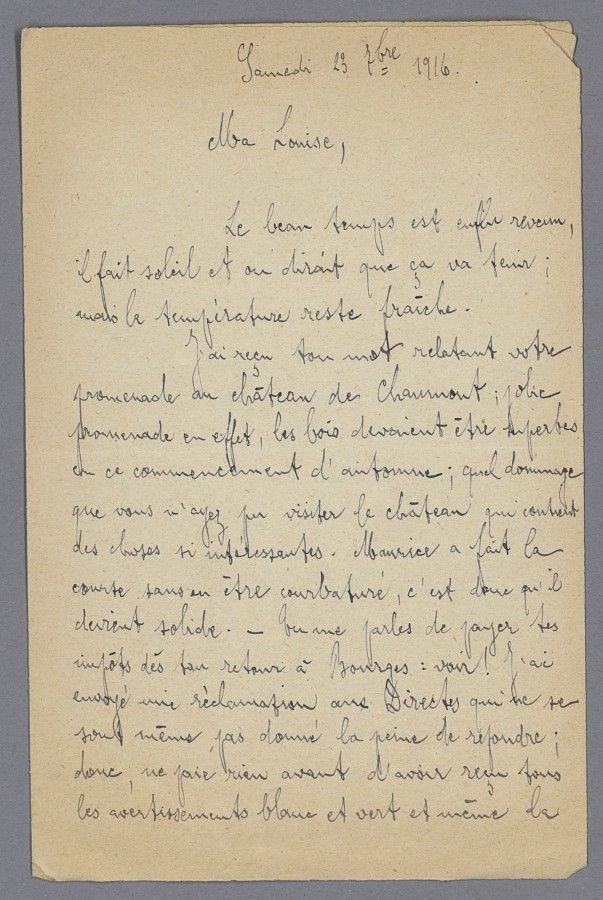 Samedi 23 7bre 1916.
Ma Louise,
Le beau temps est enfin revenu,
il fait soleil et on dirait que ça va tenir ;
mais la température reste fraîche.
J'ai reçu ton mot relatant votre
promenade au château de Chaumont ; jolie
promenade en effet, les bois devaient être superbes
en ce commencement d'automne ; quel dommage
que vous n'ayez pu visiter le château qui contient
des choses si intéressantes. Maurice a fait la
course sans en être courbaturé, c'est donc qu'il
devient solide. — Tu me parles de payer tes
impôts dès ton retour à Bourges : voir ! J'ai
envoyé une réclamation aux Directes qui ne se
sont même pas donné la peine de répondre ;
donc, ne paie rien avant d'avoir reçu tous
les avertissements blanc et vert et même la